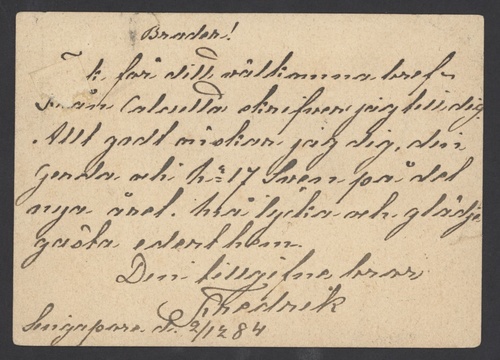 Broder!
Tk för ditt välkomna bref
från Calcutta skrifver jag till dig.
Allt godt önskar jag dig, din
Gerda och N:r 17 Sven på det
nya året. Må lycka och glädje
gästa edert hem.
Din tillgifne bror
Fredrik
Singapore d. 2/12 84